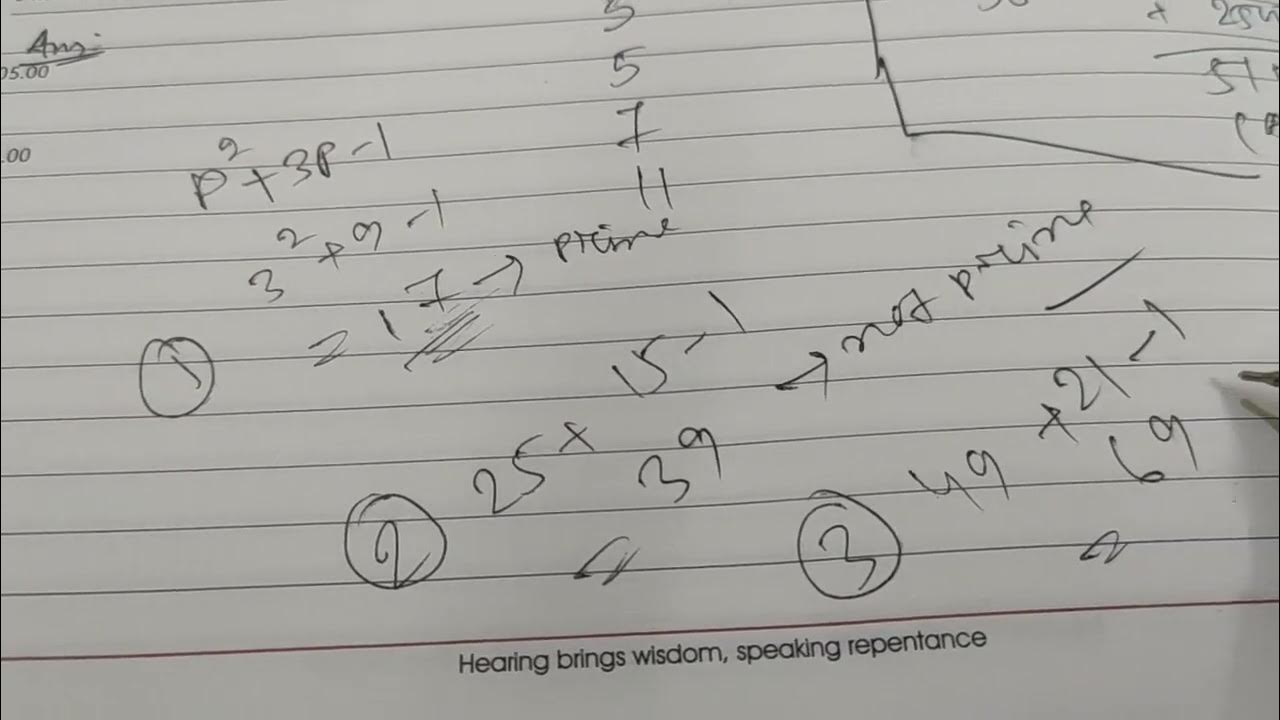 3
+ 254
Ans:
05.00
5
51
7
.00
p²+3p-1
11
3²+9-1
= 17 → prime
1
15-1
→ not prime
25+
39
+21-1
49
69
2
3
Hearing brings wisdom, speaking repentance